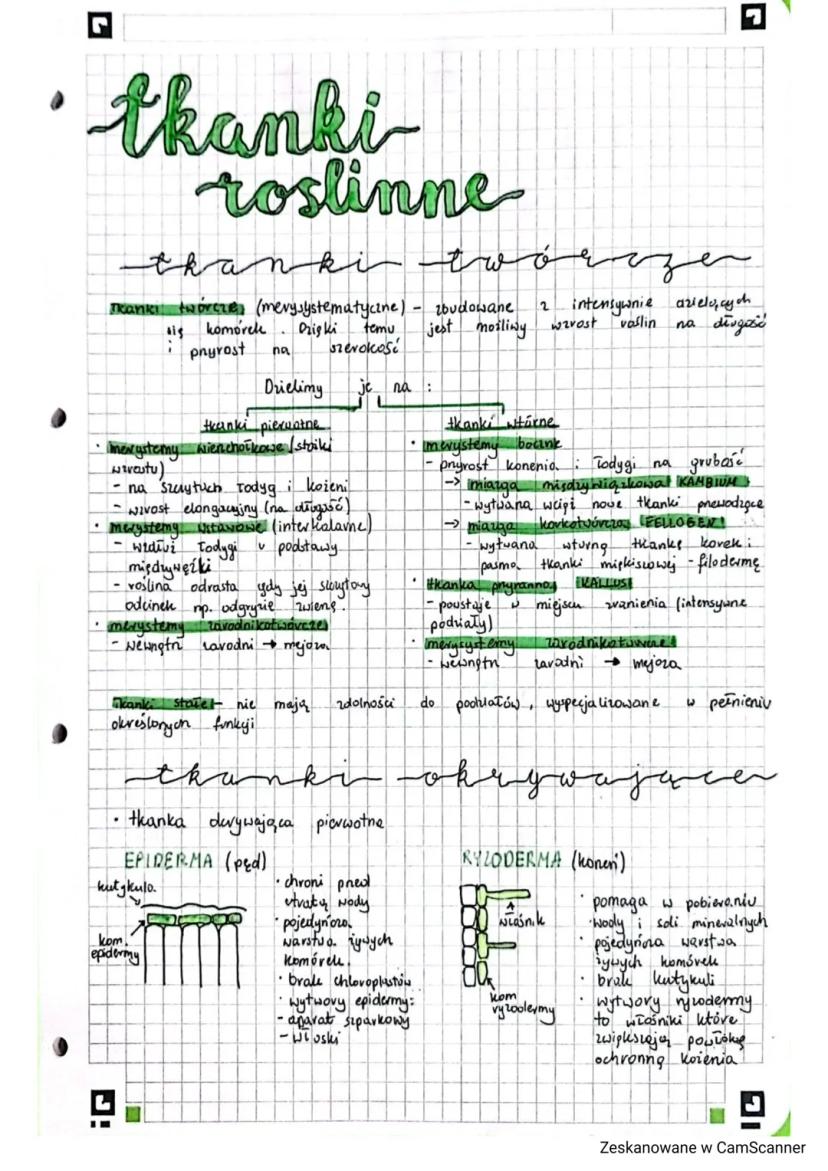 tkanki
roslinne
tkanki twórcze
Tkanki twórcze (merysystematyczne) - zbudowane z intensywnie dzielących
się komórek. Dzięki temu jest możliwy wzrost roślin na długość
i przyrost na szerokość
Dzielimy je na :
tkanki pierwotne
• merystemy wierzchołkowe (stożki
wzrostu)
- na szczytach łodyg i korzeni
- wzrost elongacyjny (na długość)
• merystemy wstawowe (interkalarne)
- wzdłuż łodygi u podstawy
międzywęźli
- roślina odrasta gdy jej szczytowy
odcinek np. odgryzie zwierzę.
• merystemy zarodnikotwórcze
- wewnątrz zarodni → mejoza
tkanki wtórne
• merystemy boczne
- przyrost korzenia i łodygi na grubość
→ miazga międzywiązkowa KAMBIUM
- wytwarza wciąż nowe tkanki przewodzące
→ miazga korkotwórcza FELLOGEN
- wytwarza wtórną tkankę korek i
pasmo tkanki miękiszowej - filodermę
• tkanka przyranna KALLUS
- powstaje w miejscu zranienia (intensywne
podziały)
• merysystemy zarodnikotwórcze
- wewnątrz zarodni → mejoza
Tkanki stałe - nie mają zdolności do podziałów, wyspecjalizowane w pełnieniu
określonych funkcji
tkanki okrywające
• tkanka okrywająca pierwotna
EPIDERMA (pęd)
kutykula
kom.
epidermy
• chroni przed
utratą wody
• pojedyńcza
warstwa żywych
komórek.
• brak chloroplastów
• wytwory epidermy:
- aparat szparkowy
- włoski
RYZODERMA (korzeń)
włośnik
kom
ryzodermy
• pomaga w pobieraniu
wody i soli mineralnych
• pojedyńcza warstwa
żywych komórek
• brak kutykuli
• wytwory ryzodermy
to włośniki które
zwiększają powłokę
ochronną korzenia
Zeskanowane w CamScanner